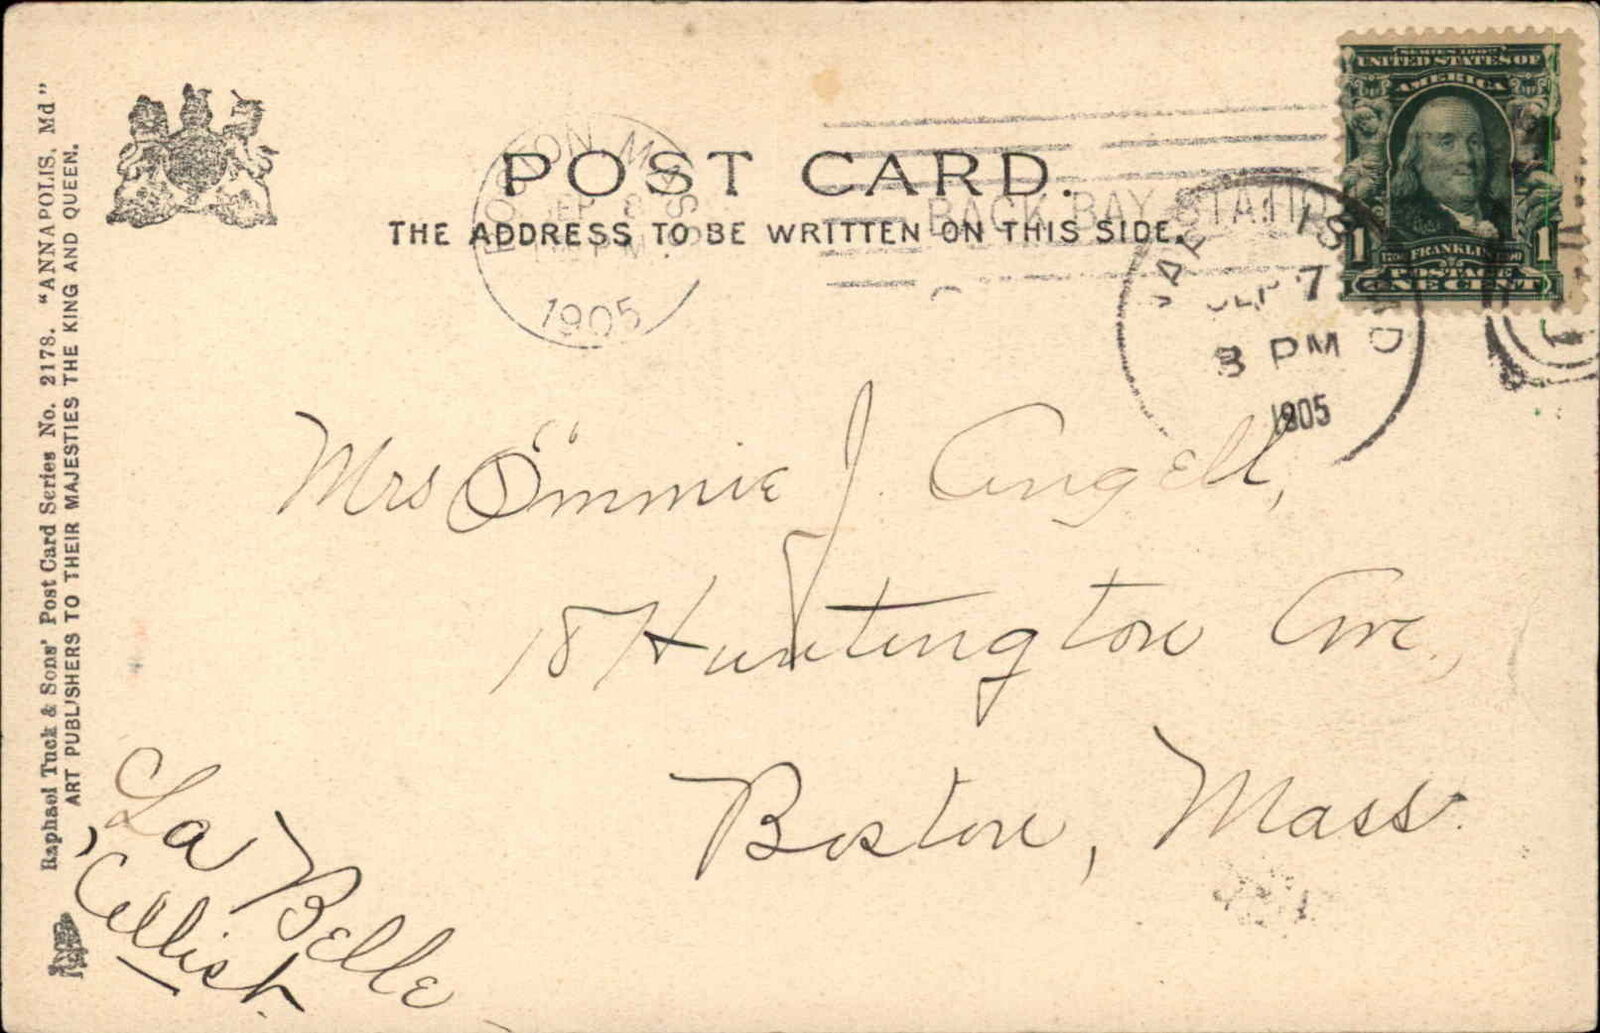 Raphael Tuck & Sons' Post Card Series No. 2178. "ANNAPOLIS, Md"
ART PUBLISHERS TO THEIR MAJESTIES THE KING AND QUEEN.
POST CARD.
THE ADDRESS TO BE WRITTEN ON THIS SIDE.
BOSTON MASS
SEP 8
PM
1905
BACK BAY STATION
SEP 7
8 PM
1905
D
SERIES 1902
UNITED STATES OF
AMERICA
1 FRANKLIN 1
POSTAGE
ONE CENT
Mrs Emmie J. Angell,
18 Huntington Ave.,
Boston, Mass.
La Belle
Cellist.